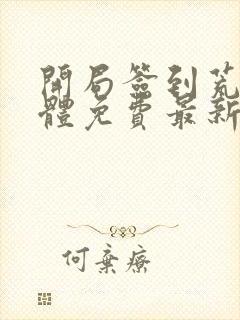 開局簽到荒
體免費最新
何棄療